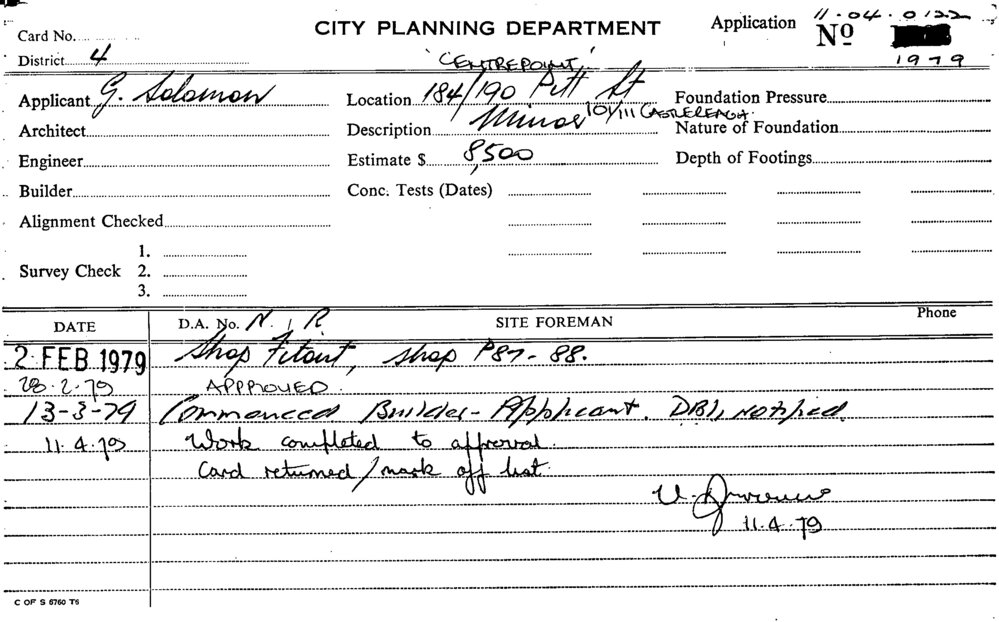 CITY PLANNING DEPARTMENT
Application No 11.04.0122
1979
Card No.
District 4
"CENTREPOINT"
Applicant G. Solomon
Location 184/190 Pitt St
101/111 CASTLEREAGH.
Foundation Pressure
Architect
Description Minor
Nature of Foundation
Engineer
Estimate $ 8,500
Depth of Footings
Builder
Conc. Tests (Dates)
Alignment Checked
Survey Check 1.
2.
3.
DATE D.A. No. N.I.R SITE FOREMAN Phone
2 FEB 1979 Shop Fitout, shop P87-88.
28.2.79 APPROVED.
13-3-79 Commenced Builder-Applicant. DBI, notified.
11.4.79 Work completed to approval.
Card returned/mark off list.
11.4.79
C OF S 6760 T6